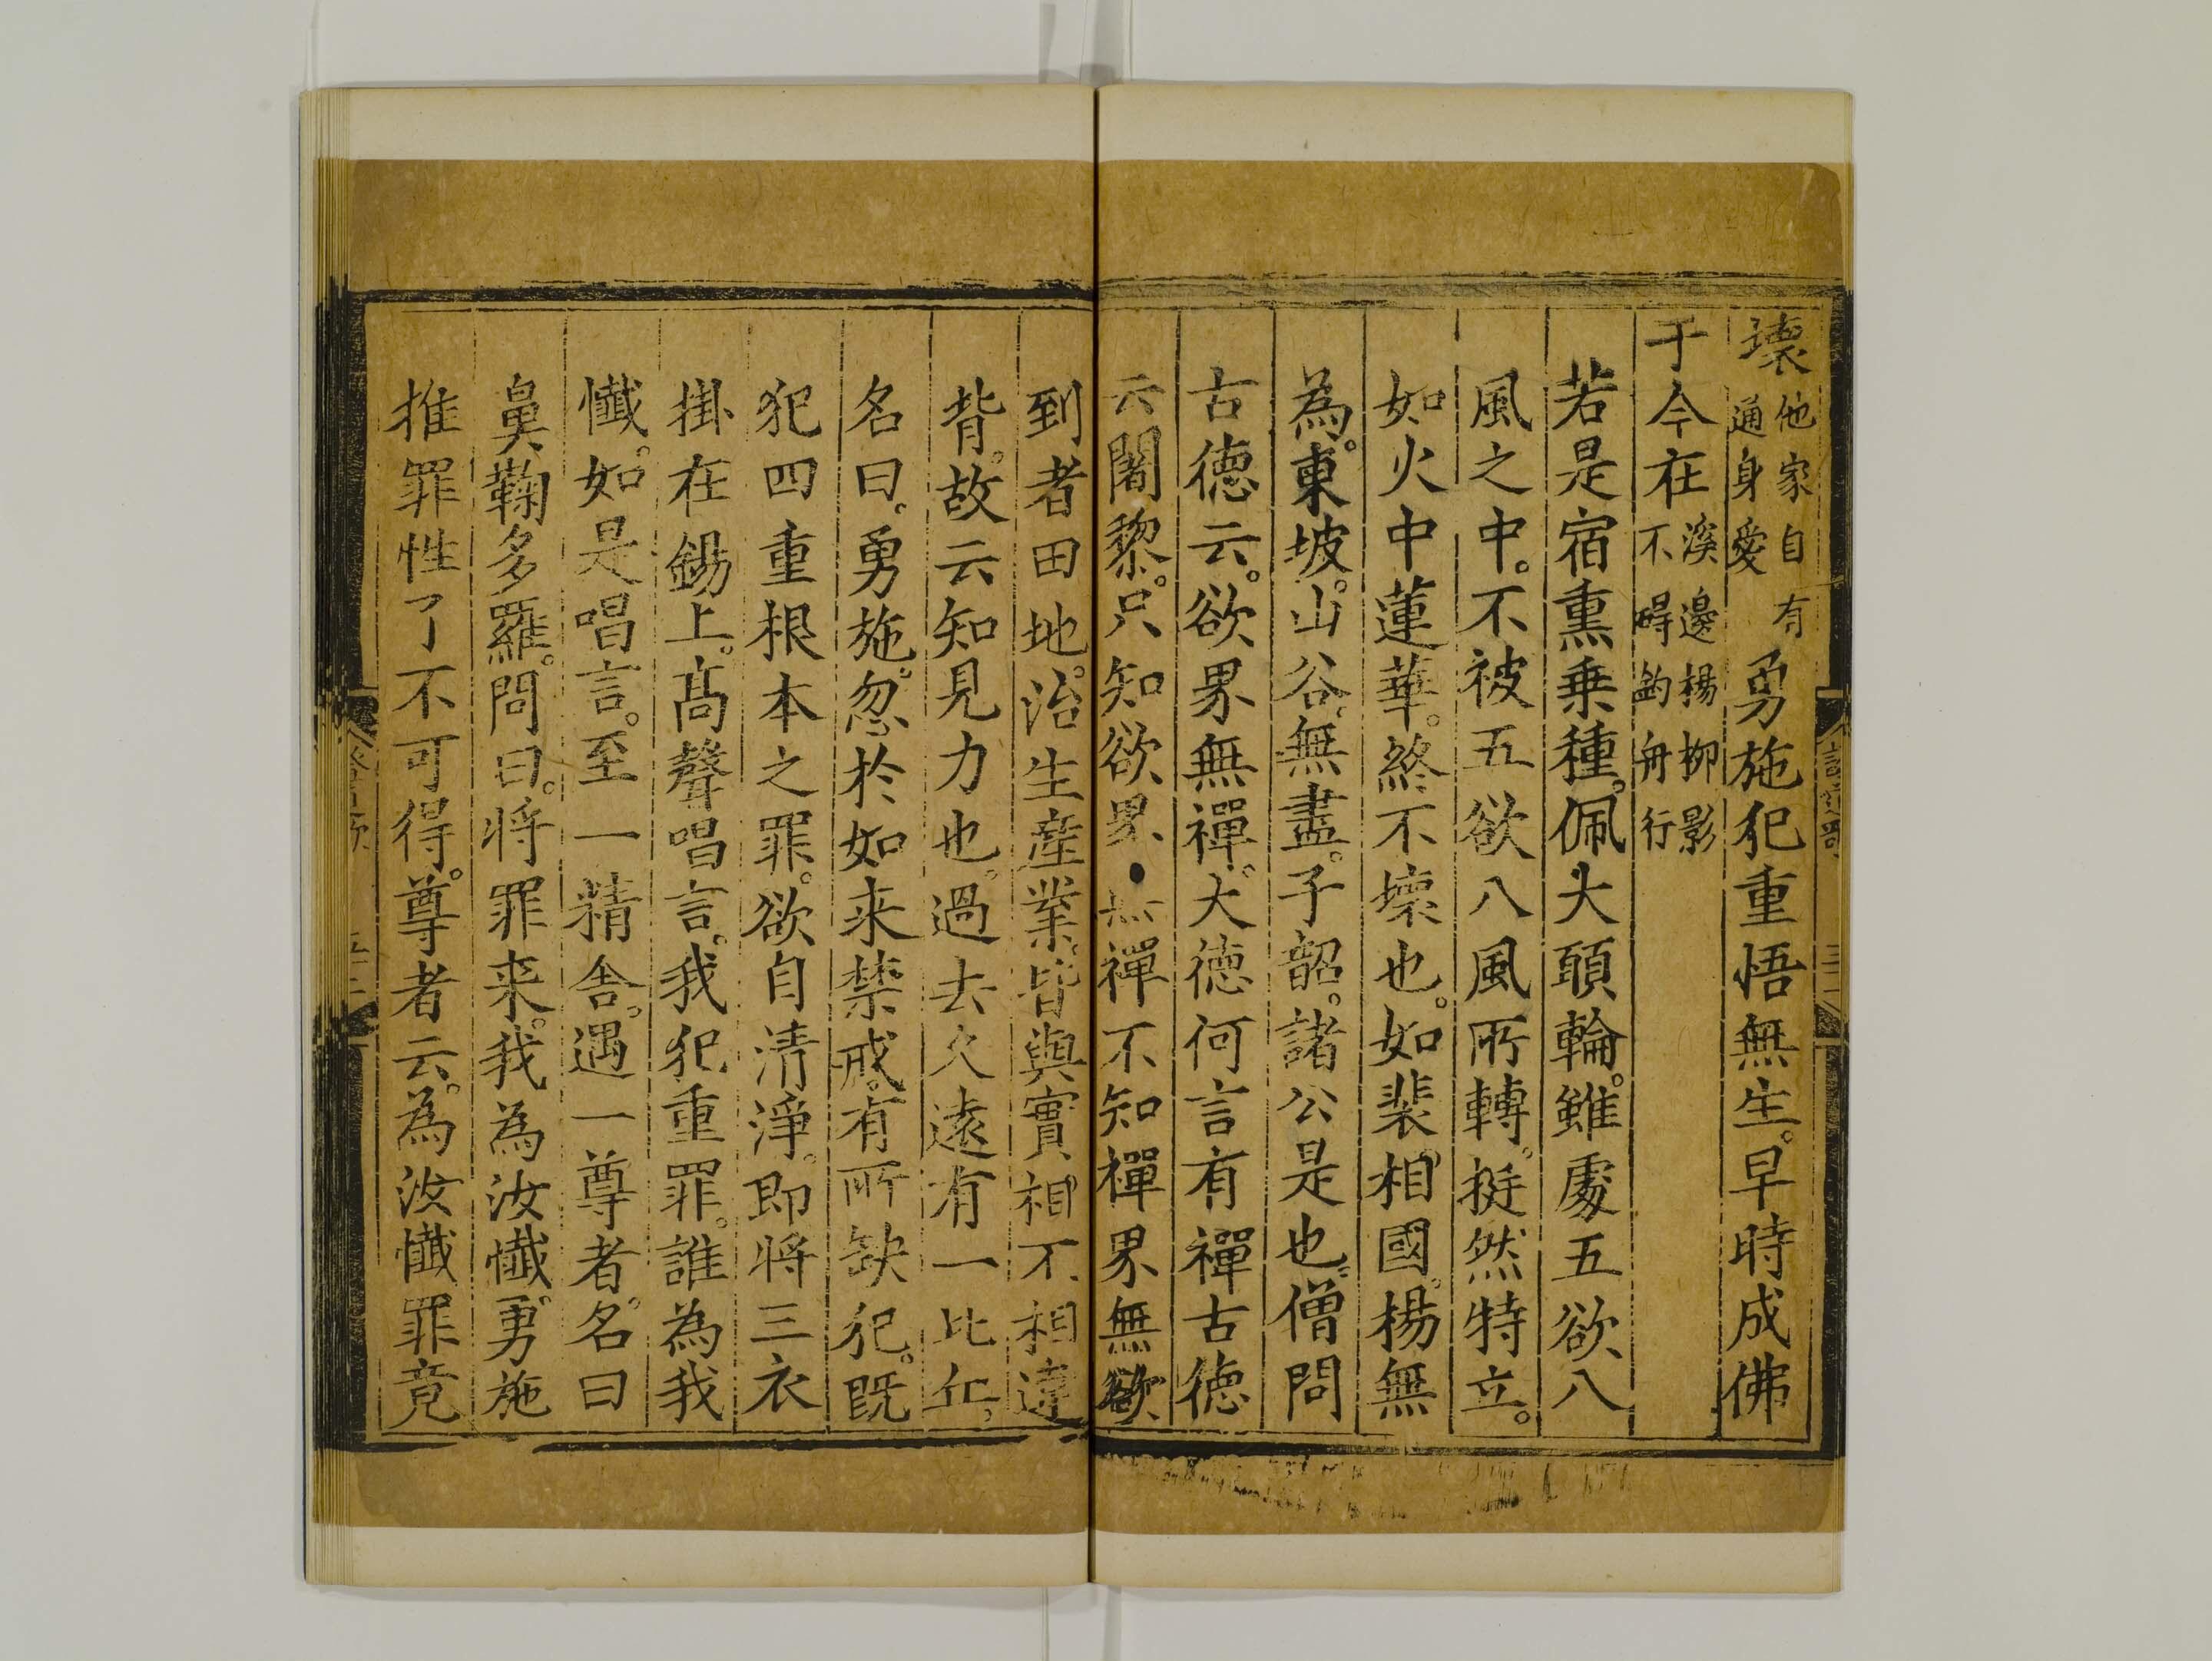 壞他家自有通身愛勇施犯重悟無生。早時成佛
于今在溪邊楊柳影不碍釣舟行
若是宿熏乗種。佩大頭輪。雖處五欲八
風之中。不被五欲八風所轉。挺然特立。
如火中蓮華。終不壞也。如裴相國。楊無
為。東坡。山谷。無盡。子韶。諸公是也。僧問
古德云。欲界無禪。大德何言有禪古德
云闍黎。只知欲界無禪不知禪界無欲
到者田地。治生産業。皆與實相不相違
背。故云知見力也。過去久遠有一比丘。
名曰。勇施。忽於如来禁戒。有所缺犯。既
犯四重根本之罪。欲自清淨。即將三衣
掛在錫上。髙聲唱言。我犯重罪。誰為我
懺。如是唱言。至一精舎。遇一尊者。名曰
鼻鞠多羅。問曰。将罪来。我為汝懺。勇施
推罪性了不可得。尊者云。為汝懺罪竟